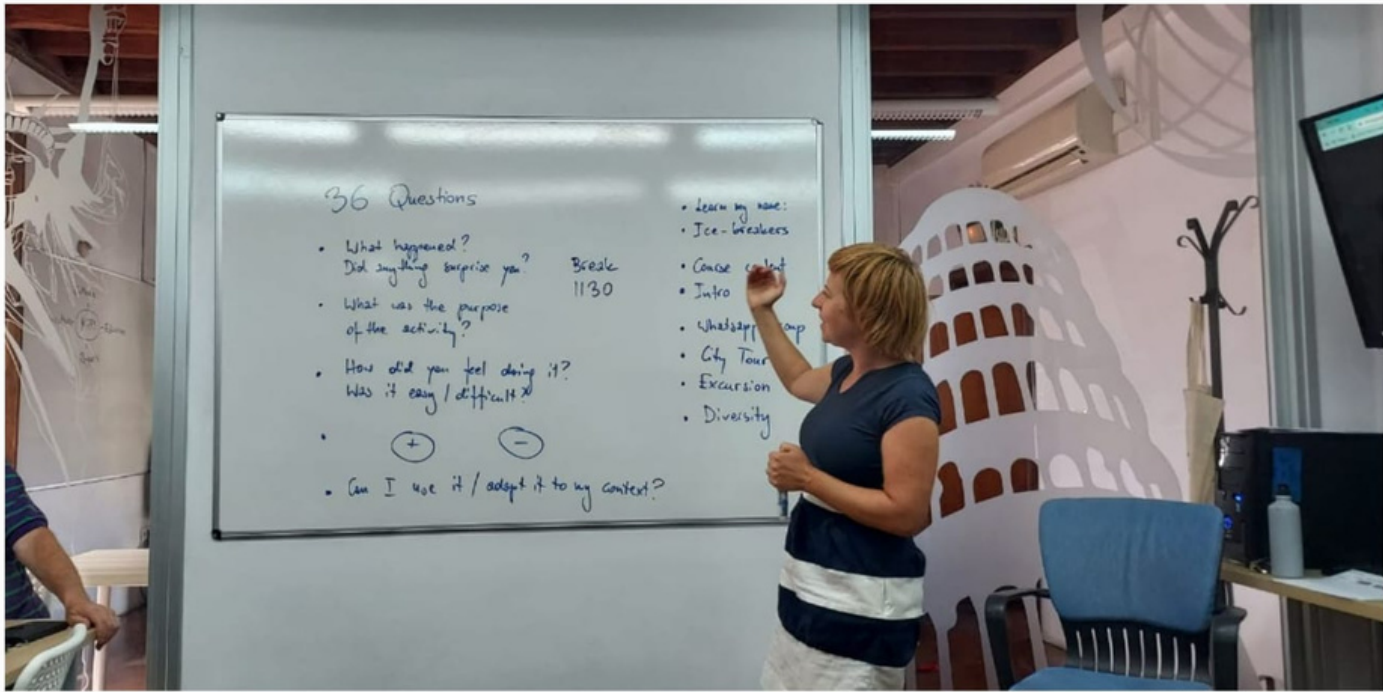 36 Questions
• What happened?
Did anything surprise you?
• What was the purpose
of the activity?
• How did you feel doing it?
Was it easy / difficult?
•
+ -
• Can I use it / adapt it to my context?
Break
1130
• Learn my name:
• Ice-breakers
• Course content
• Intro
• Whatsapp
• City Tour
• Excursion
• Diversity